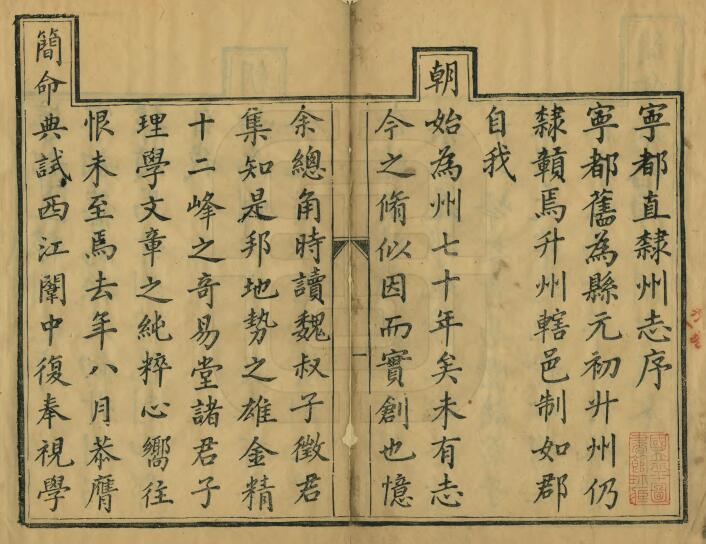 寧都直隸州志序
寧都舊為縣元初升州仍
隸贛焉升州轄邑制如郡
自我
朝始為州七十年矣未有志
今之脩似因而實創也憶
一
余總角時讀魏叔子徵君
集知是邦地勢之雄金精
十二峰之奇易堂諸君子
理學文章之純粹心嚮往
恨未至焉去年八月恭膺
簡命典試西江闈中復奉視學